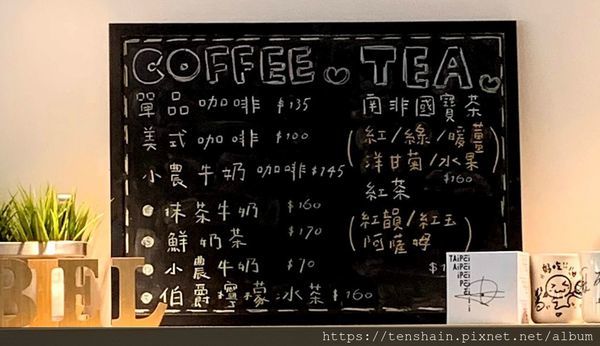 COFFEE
單品咖啡 $135
美式咖啡 $100
小農牛奶咖啡 $145
抹茶牛奶 $160
鮮奶茶 $170
小農牛奶 $70
伯爵檸檬冰茶 $160
TEA
南非國寶茶
(紅/綠/暖薑
洋甘菊/水果)
$160
紅茶
(紅韻/紅玉
阿薩姆)
BEL
TAIPEI
https://tenshain.pixnet.net/album